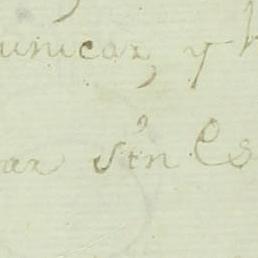 unicar, y
ar sin Es